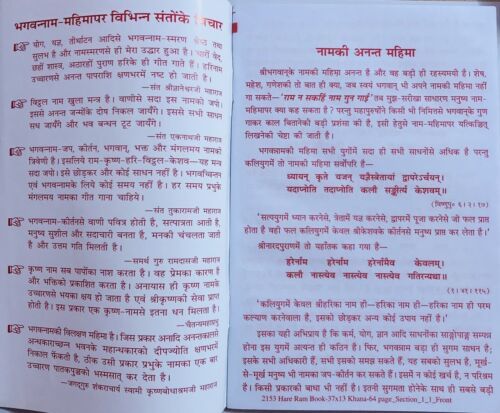 भगवन्नाम-महिमापर विभिन्न संतोंके विचार
योग, यज्ञ, तीर्थाटन आदिसे भगवन्नाम-स्मरण श्रेष्ठ तथा
सुलभ है और नामस्मरणसे ही मेरा उद्धार हुआ है। चारों वेद,
छहों शास्त्र, अठारहों पुराण हरिके ही गीत गाते हैं। हरिनाम
उच्चारणसे अनन्त पापराशि क्षणभरमें नष्ट हो जाती है।
—संत श्रीज्ञानेश्वरजी महाराज
विट्ठल नाम खुला मन्त्र है। वाणीसे सदा इस नामको जपो।
इससे अनन्त जन्मोंके दोष निकल जायँगे। इससे सभी साधन
सध जायँगे और भव बन्धन टूट जायँगे।
—संत एकनाथजी महाराज
भगवन्नाम-जप, कीर्तन, भगवान्, भक्त और मंगलमय नामको
त्रिवेणी है। इसलिये राम-कृष्ण-हरि-विट्ठल-केशव—यह मन्त्र
सदा जपो। इसे छोड़कर और कोई साधन नहीं है। भगवच्चिन्तन
एवं भगवन्नामके लिये कोई समय नहीं है। हर समय प्रभुके
मंगलमय नामका गीत गाना चाहिये।
—संत तुकारामजी महाराज
भगवन्नाम-कीर्तनसे वाणी पवित्र होती है, सत्पात्रता आती है,
मनुष्य सुशील और सदाचारी बनता है, मनकी चंचलता जाती
है और उत्तम गति मिलती है।
—समर्थ गुरु रामदासजी महाराज
कृष्ण नाम सब पापोंका नाश करता है। वह प्रेमका कारण है
और भक्तिको प्रकाशित करता है। अनायास ही कृष्ण नामके
उच्चारणसे भयका क्षय हो जाता है एवं श्रीकृष्णकी सेवा प्राप्त
होती है। इस प्रकार एक कृष्ण-नामसे इतना धन मिलता है।
—चैतन्यमहाप्रभु
भगवन्नामकी विलक्षण महिमा है। जिस प्रकार अनादि अनन्तकालसे
अन्धकाराच्छन्न भवनके महान्धकारको दीपज्योति क्षणभरमें
निकाल फेंकती है, ठीक उसी प्रकार प्रभुके नामका एक बार
उच्चारण पातकपुञ्जको भस्मसात् कर देता है।
—जगद्गुरु शंकराचार्य स्वामी कृष्णबोधाश्रमजी महाराज
नामकी अनन्त महिमा
श्रीभगवान्‌के नामकी महिमा अनन्त है और वह बड़ी ही रहस्यमयी है। शेष,
महेश, गणेशकी तो बात ही क्या, जब स्वयं भगवान् भी अपने नामकी महिमा नहीं
गा सकते—'राम न सकहिं नाम गुन गाई' तब मुझ-सरीखा साधारण मनुष्य नाम-
महिमापर क्या कह सकता है ? परन्तु महापुरुषोंने किसी भी निमित्तसे भगवान्‌के गुण
गाकर काल बितानेकी बड़ी प्रशंसा की है, इसी हेतुसे नाम-महिमापर यत्किञ्चित्
लिखनेकी चेष्टा की जाती है।
भगवन्नामकी महिमा सभी युगोंमें सदा ही सभी साधनोंसे अधिक है परन्तु
कलियुगमें तो नामको महिमा सर्वोपरि है—
ध्यायन् कृते यजन् यज्ञैस्त्रेतायां द्वापरेऽर्चयन्।
यदाप्नोति तदाप्नोति कलौ सङ्कीर्त्य केशवम्॥
(विष्णुपु० ६।२।१७)
'सत्ययुगमें ध्यान करनेसे, त्रेतामें यज्ञ करनेसे, द्वापरमें पूजा करनेसे जो फल प्राप्त
होता है वही फल कलियुगमें केवल श्रीकेशवके कीर्तनसे मनुष्य प्राप्त कर लेता है।'
श्रीनारदपुराणमें तो यहाँतक कहा गया है—
हरेर्नाम हरेर्नाम हरेर्नामैव केवलम्।
कलौ नास्त्येव नास्त्येव नास्त्येव गतिरन्यथा॥
(१।४१।११५)
'कलियुगमें केवल श्रीहरिका नाम ही—हरिका नाम ही—हरिका नाम ही परम
कल्याण करनेवाला है, इसको छोड़कर अन्य कोई उपाय नहीं है।'
इसका यही अभिप्राय है कि कर्म, योग, ज्ञान आदि साधनोंका साङ्गोपाङ्ग सम्पन्न
होना इस युगमें अत्यन्त ही कठिन है। फिर, भगवन्नाम बड़ा ही सुगम साधन है;
इसके सभी अधिकारी हैं, सभी इसको समझ सकते हैं, यह सबको सुलभ है, मूर्ख-
से-मूर्ख भी मनुष्य नामका जप-कीर्तन कर सकते हैं। इसमें न कोई खर्च है, न परिश्रम है।
किसी प्रकारकी बाधा भी नहीं है। इतनी सुगमता होनेके साथ ही सबसे बड़ी
2153 Hare Ram Book-37x13 Khana-64 page_Section_1_1_Front